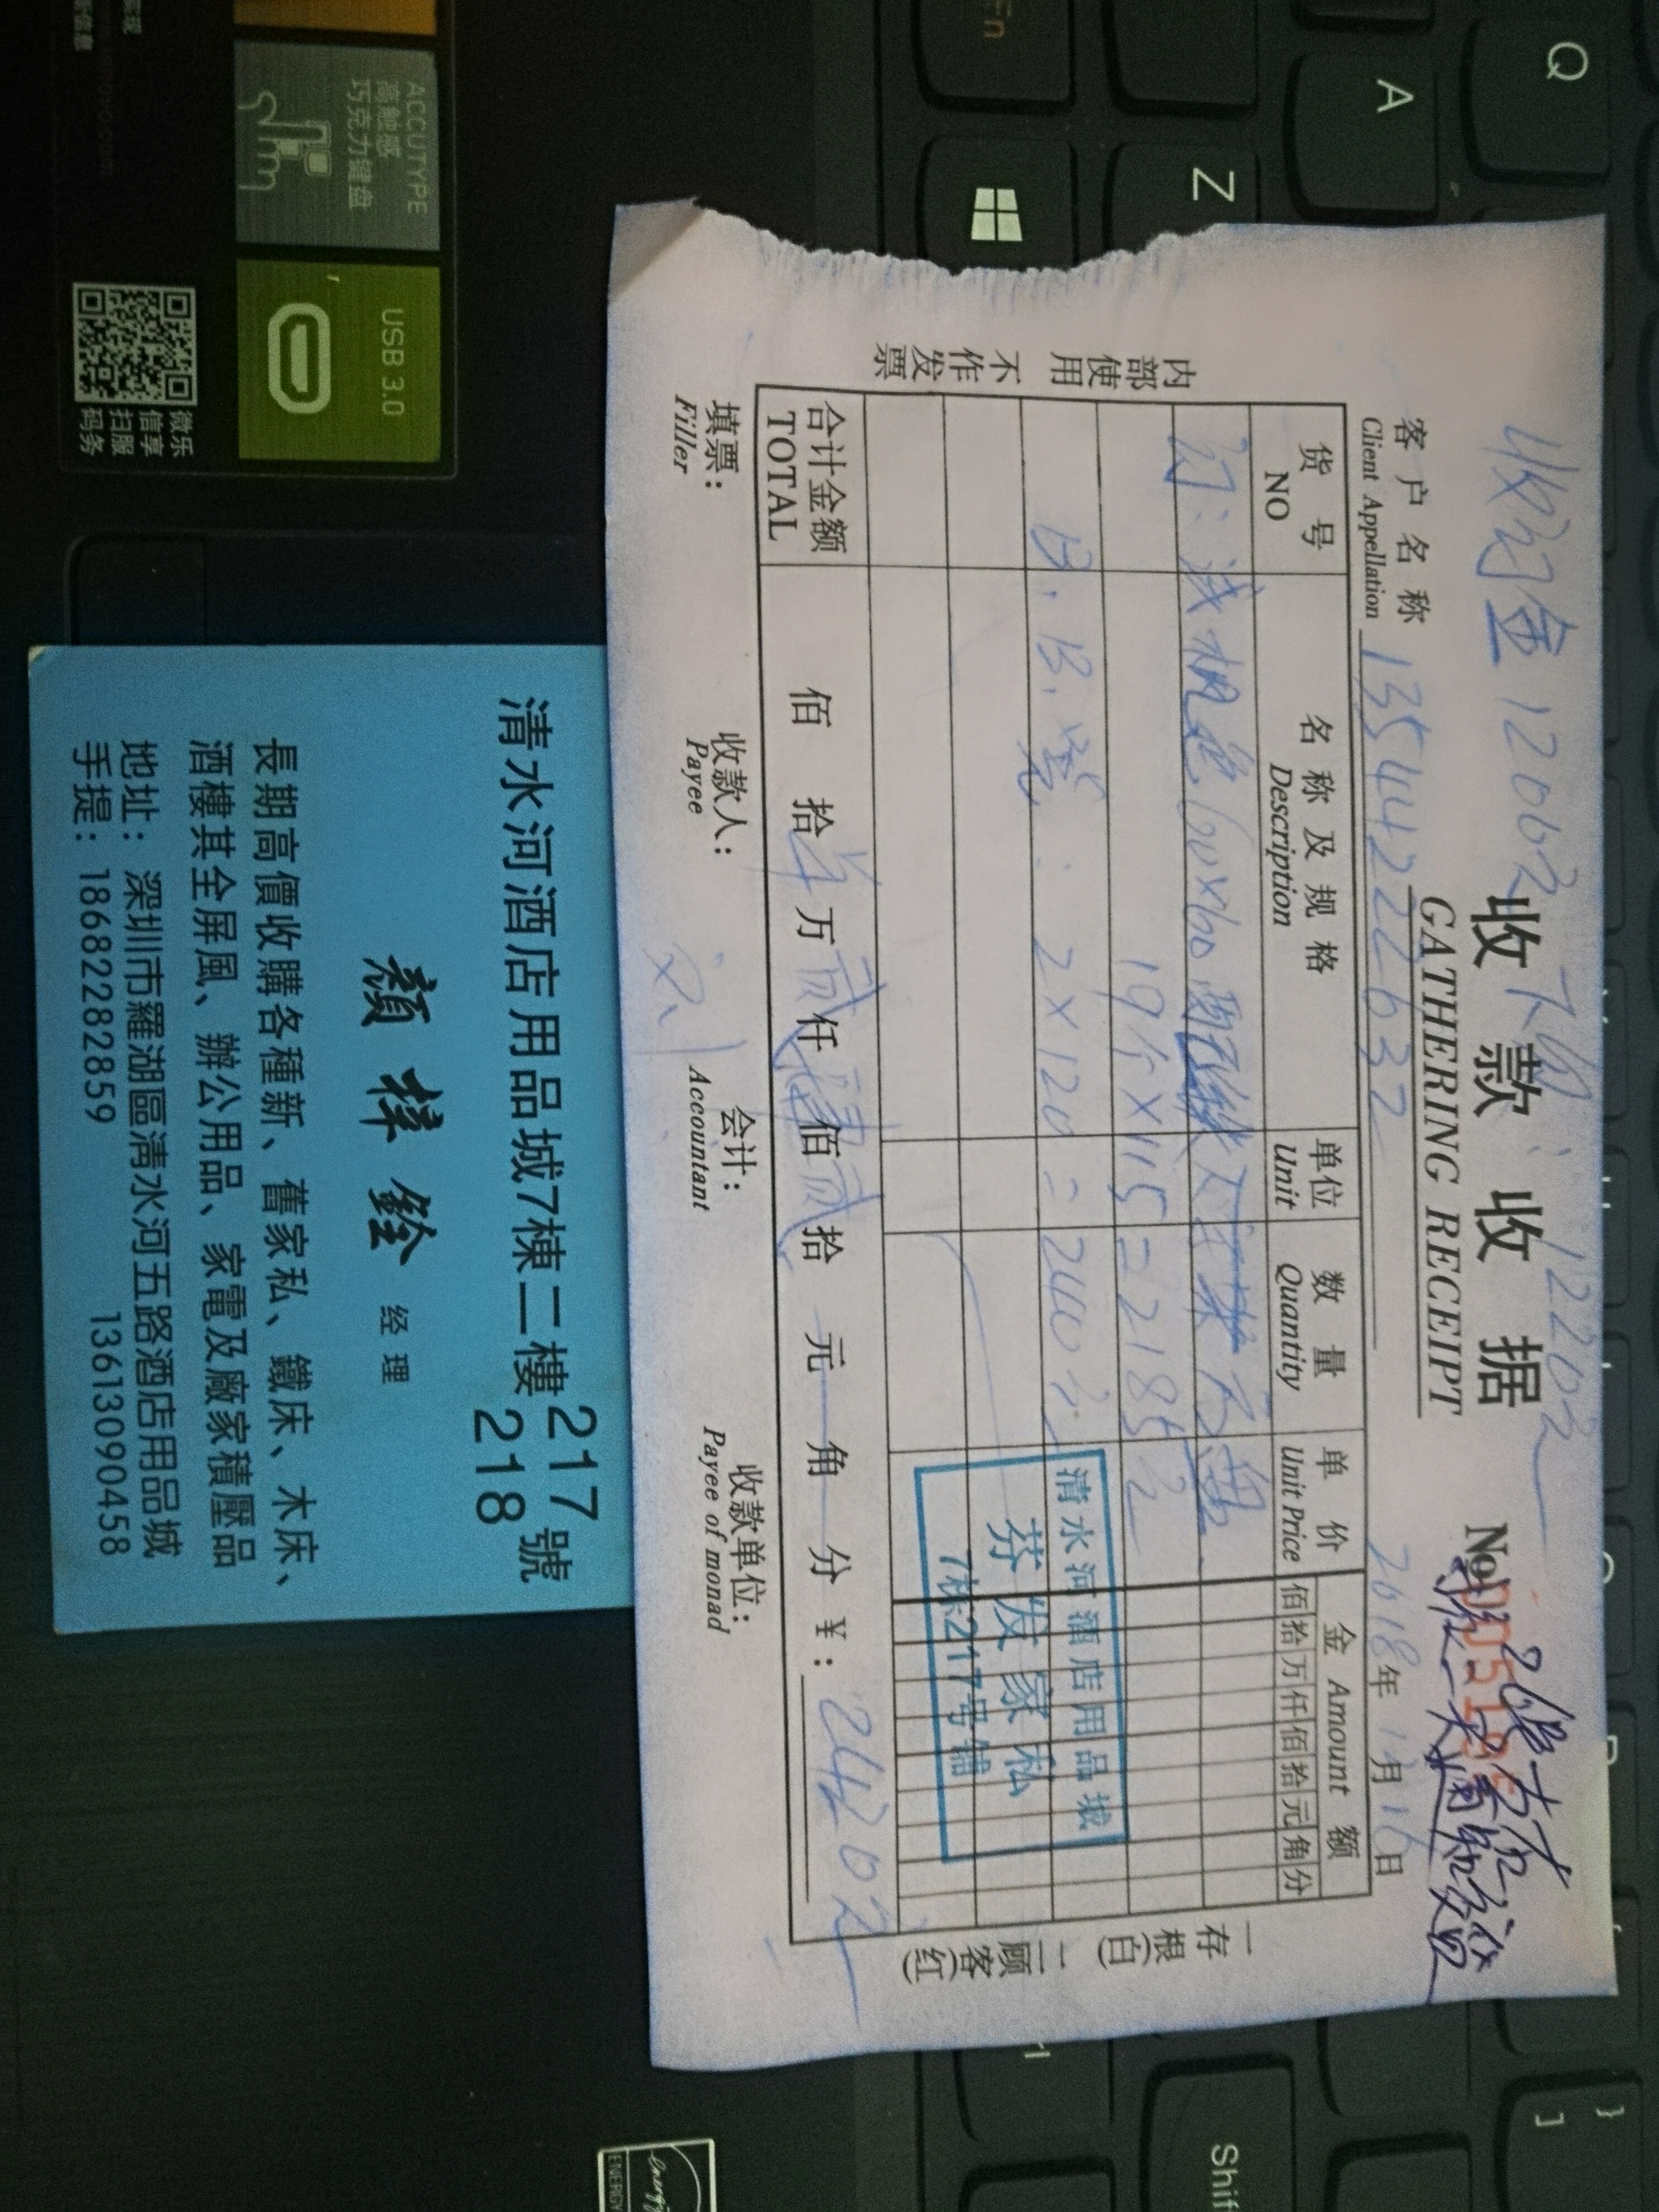 Q
}
]
A
Z
Shif
Fn
收订金1200元 下欠：1220元
收款收据
GATHERING RECEIPT
No
26号左右
提前二天通知交货
客户名称
Client Appellation 13544222632
2018年12月16日
货号
NO
名称及规格
Description
单位
Unit
数量
Quantity
单价
Unit Price
金 Amount 额
佰拾万仟佰拾元角分
订：浅枫色60x60配铁人字架方盘
19个×115=2185元
B.B.凳：2×120=240元
清水河酒店用品城
芬发家私
7栋217号铺
内部使用 不作发票
一存根(白) 二顾客(红)
合计金额
TOTAL
佰 拾 万贰仟肆佰贰拾 元 角 分 ¥：2420元
填票：
Filler
收款人：
Payee
刘
会计：
Accountant
收款单位：
Payee of monad
energy
ENERGY
清水河酒店用品城7棟二樓217
218號
顏梓銓 经理
長期高價收購各種新、舊家私、鐵床、木床、
酒樓其全屏風、辦公用品、家電及廠家積壓品
地址：深圳市羅湖區清水河五路酒店用品城
手提：18682282859 13613090458
ACCUTYPE
高触感
巧克力键盘
USB 3.0
微乐
信享
扫服
码务